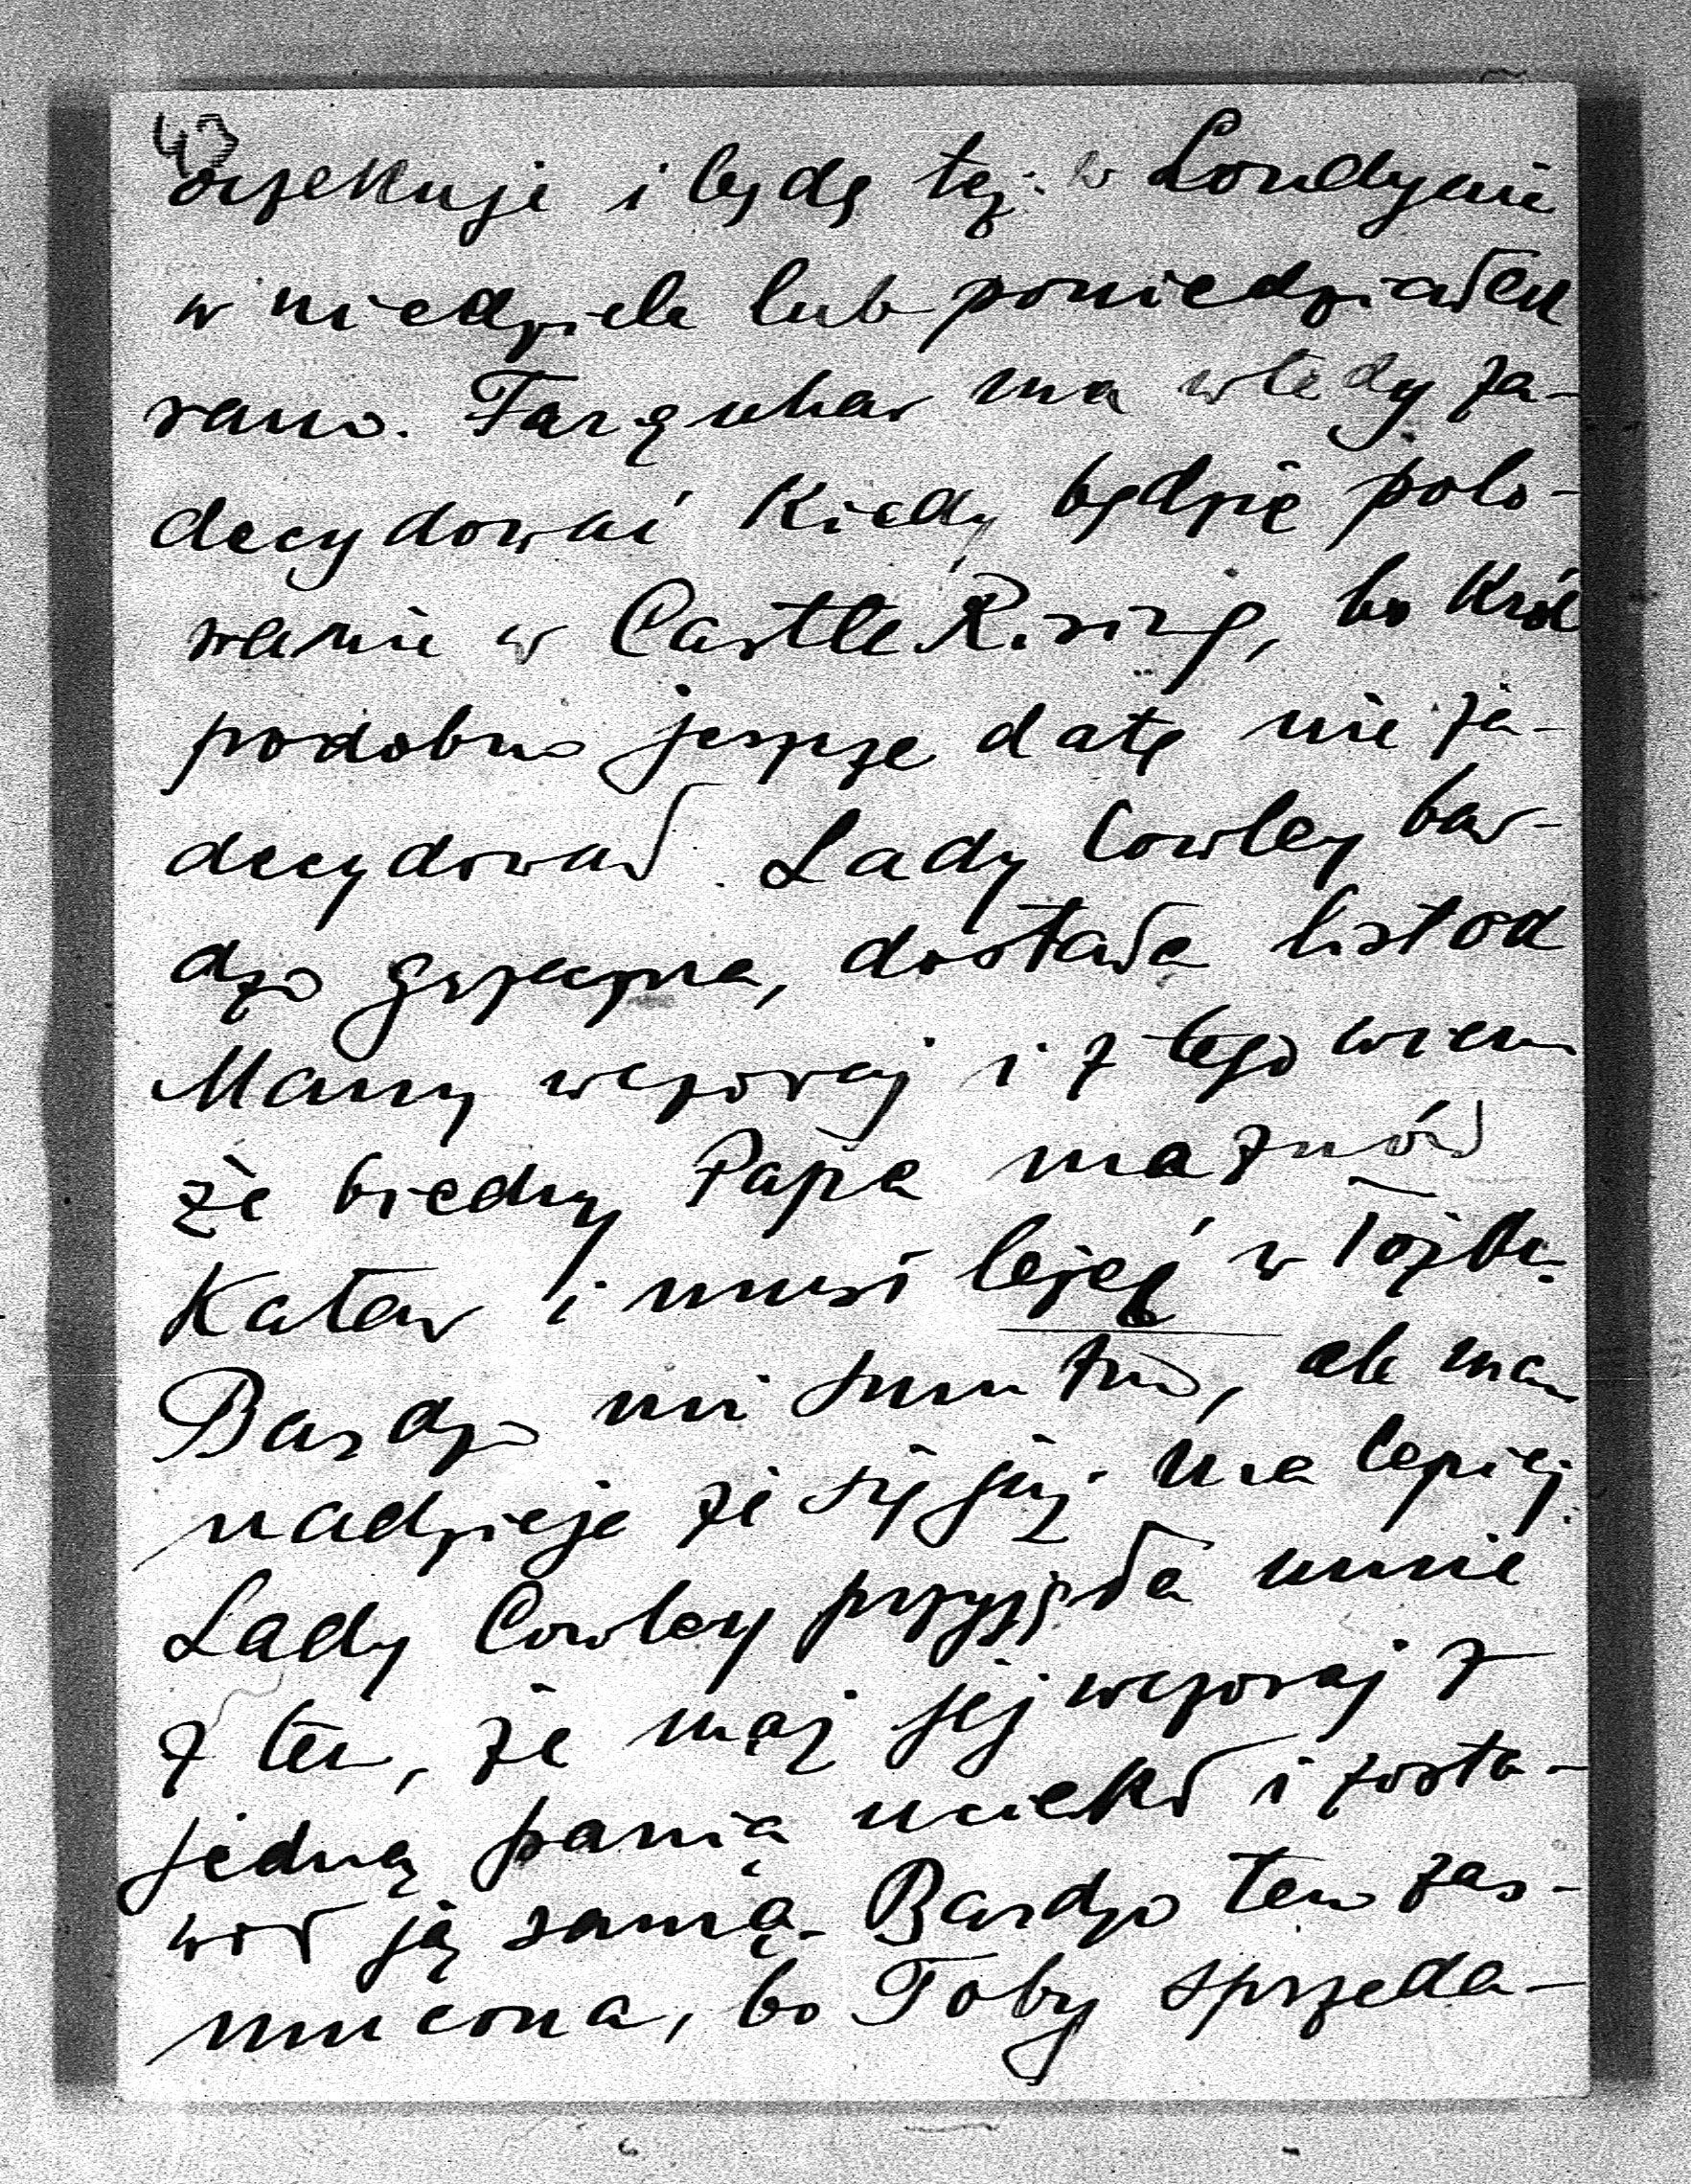 43
oczekuje i będę też w Londynie
w niedziele lub poniedziałek
rano. Farquhar ma wtedy za-
decydować kiedy będzie polo-
wanie w Castle Rising, bo Król
podobno jeszcze datę nie za-
decydował. Lady Cowley bar-
dzo grzeczna, dostała list od
Mamy wczoraj i z tego wiem
że biedny Papa ma znów
Katar i musi leżeć w łóżku.
Bardzo mi smutno, ale mam
nadzieje że się już ma lepiej.
Lady Cowley przyjęła mnie
z tem, że mąż jej wczoraj z
jedną panią uciekł i zosta-
wił ją samą. Bardzo tem zas-
mucona, bo Toby sprzeda-